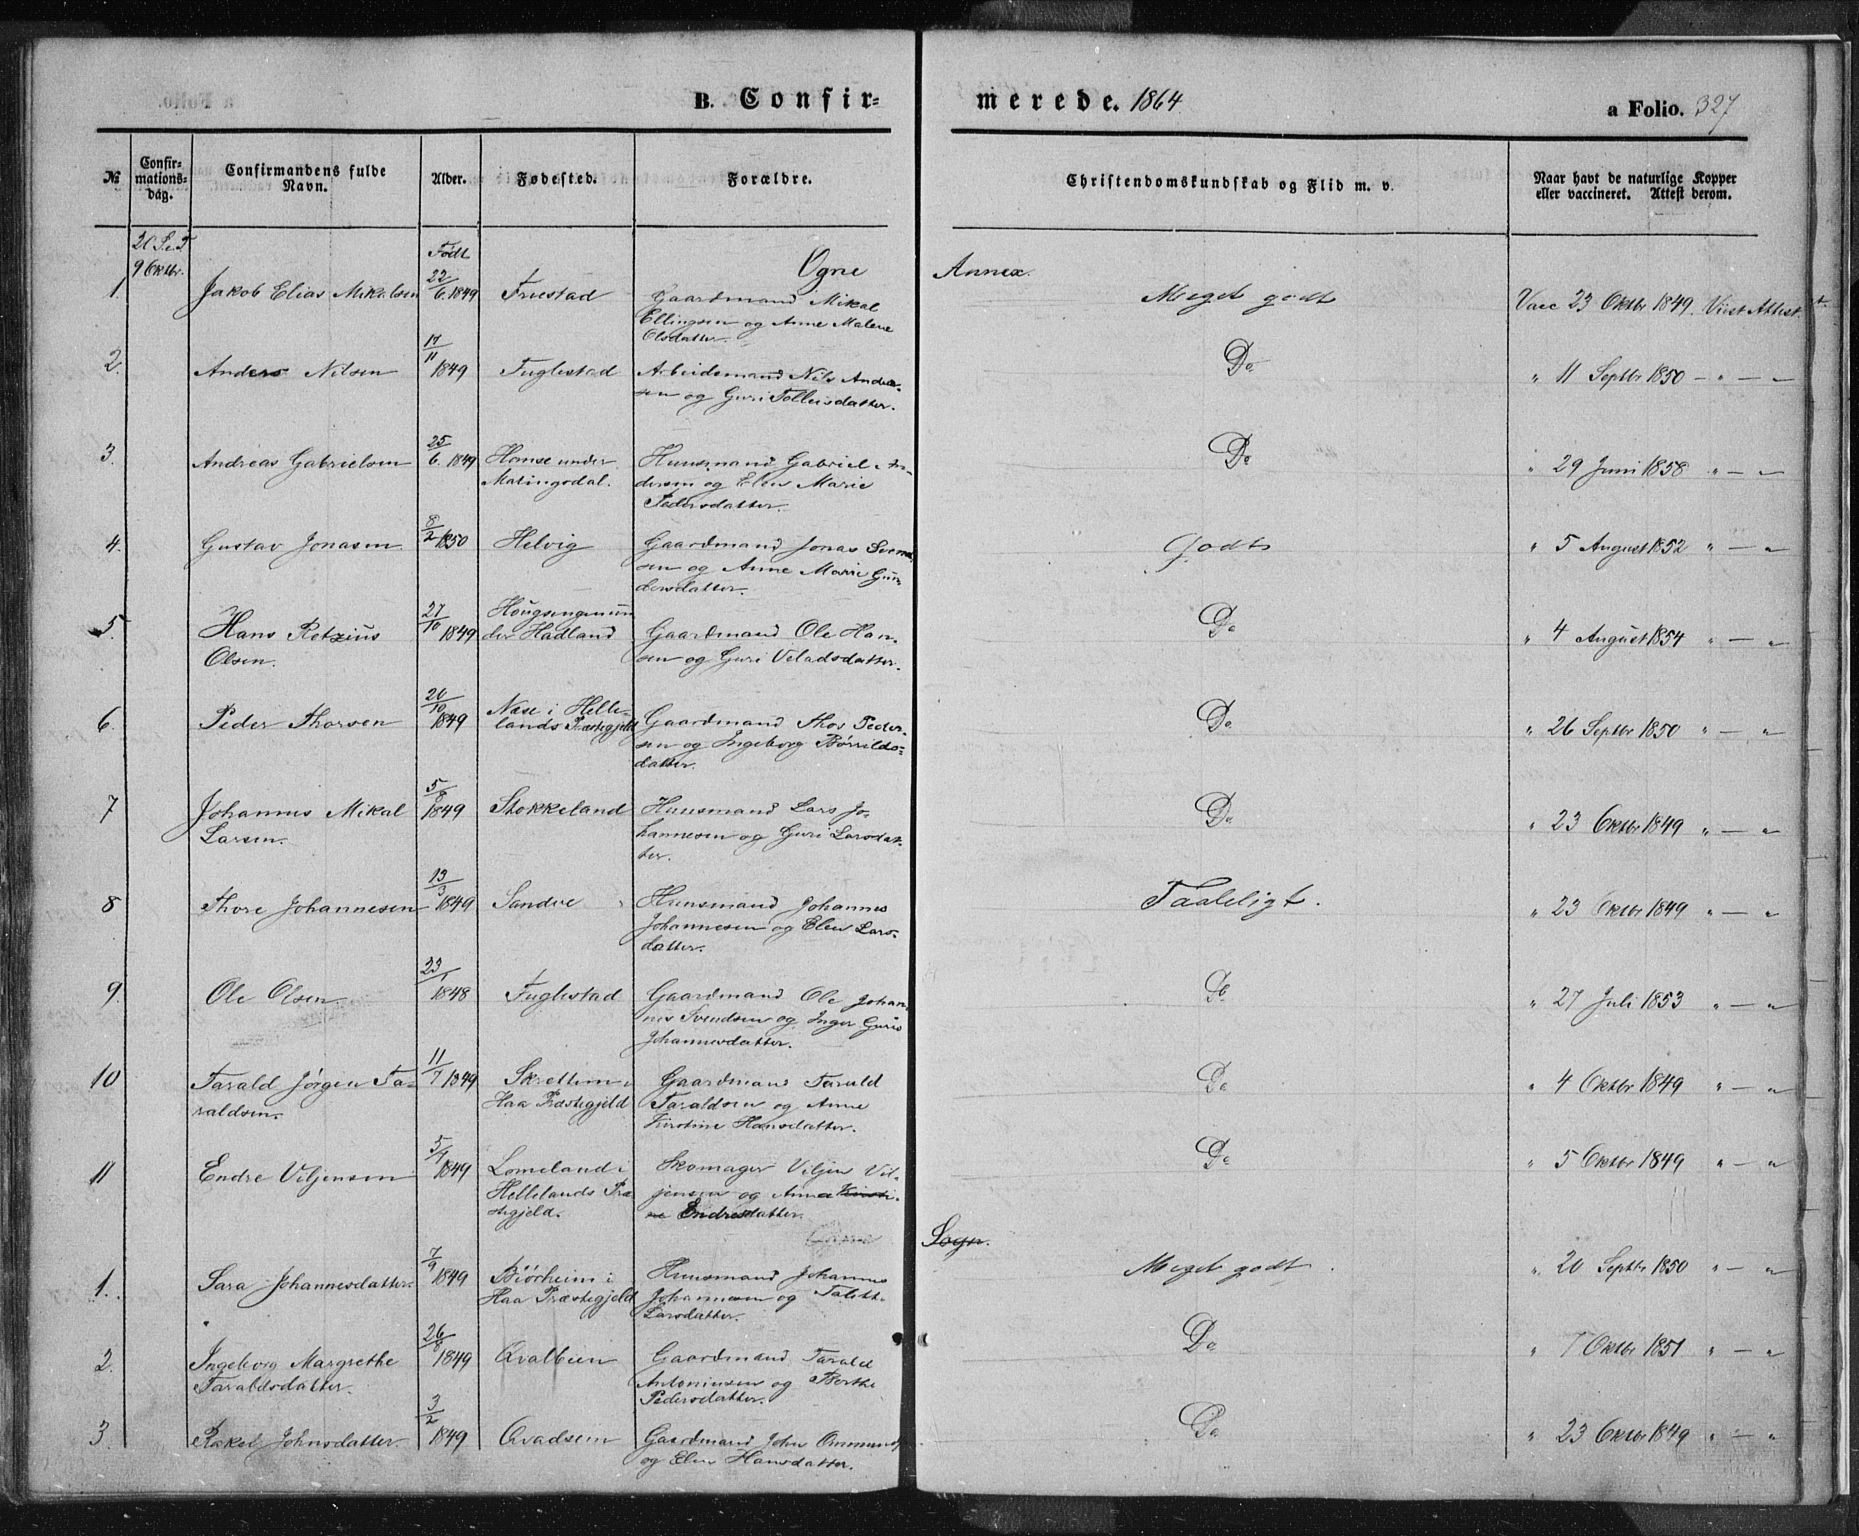 B. Confirmerede. 1864
a Folio. 327
№ Confirmationsdag. Confirmandens fulde Navn. Alder. Fødested. Forældre. Christendomskundskab og Flid m. v. Naar havt de naturlige Kopper eller vaccineret. Attest derom.
9 Oktbr.
Født
Ogne Annex.
1. Jakob Elias Mikalsen 22/6 1849 Gaardmand Mikal Meget godt Vacc 23 Oktbr 1849. Viist Attest.
Ellingsen og Anne Malene
Olsdatter.
2. Anders Nilsen 17/11 1849 Fuglestad Arbeidsmand Nils Andersen Do " 11 Septbr 1850 – " – "
og Guri Tolleisdatter.
3. Andreas Gabrielsen 25/6 1849 Homse under Huusmand Gabriel An- Do " 29 Juni 1858 " – "
Matingsdal. dersen og Elen Marie
Pedersdatter.
4. Gustav Jonasen 8/2 1850 Helvig Gaardmand Jonas Svend- Godt " 5 August 1852 " – "
sen og Anne Marie Gun-
dersdatter.
5. Hans Retzius 27/10 1849 der Hadland Gaardmand Ole Han- Do " 4 August 1854 " – "
Olsen. sen og Guri Veladsdatter.
6. Peder Thorsen 20/10 1849 Næse i Helle- Gaardmand Thor Peder- Do " 26 Septbr 1850 " – "
lands Præstegjeld sen og Ingeborg Børrilds-
datter.
7 Johannes Mikal 5/8 1849 Stokkeland Huusmand Lars Jo- Do " 23 Oktbr 1849 " – "
Larsen. hannesen og Guri Larsdat-
ter.
8 Thore Johannesen 13/3 1849 Sandve Huusmand Johannes Taaleligt. " 23 Oktbr 1849 " – "
Johannesen og Elen Lars-
datter.
9. Ole Olsen 23/1 1848 Fuglestad Gaardmand Ole Johan- Do " 27 Juli 1853 " – "
nes Svendsen og Inger Guris
Johannesdatter.
10 Tarald Jørgen Ta- 11/7 1849 Skretten i Gaardmand Tarald Do " 4 Oktbr 1849 " – "
raldsen. Haa Præstegjeld Taraldsen og Anne
Kirstine Hansdatter.
11 Endre Viljensen 5/9 1849 Lomeland i Skomager Viljen Vil- Do " 5 Oktbr 1849 " – "
Hellelands Præ- jensen og Anna Kirsti-
stegjeld. ne Endresdatter.
Sogn.
1. Sara Johannesdatter. 7/9 1849 Biørheim i Huusmand Johannes Meget godt " 20 Septbr 1850 " – "
Haa Præstegjeld Johannesen og
Larsdatter.
2. Ingeborg Margrethe 26/8 1849 Qvalbein Gaardmand Tarald Do " 7 Oktbr 1851 " – "
Taraldsdatter. Antoniusen og Berthe
Pedersdatter.
3. Rakel Johnsdatter. 3/2 1849 Qvadsem Gaardmand John Ommunds. Do " 23 Oktbr 1849 " – "
og Elen Hansdatter.